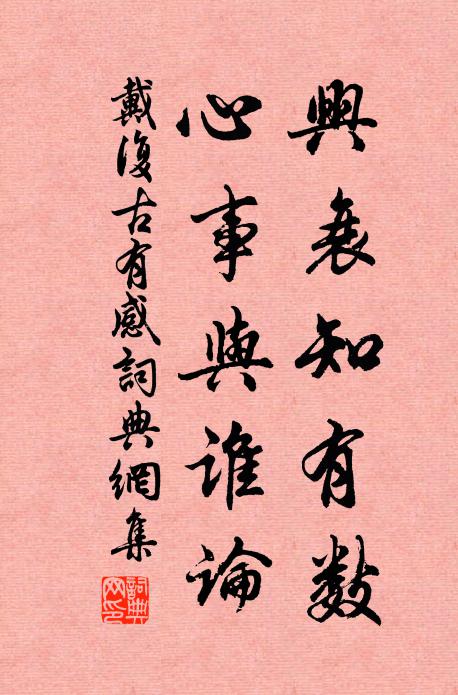 興衰知有數
心事與誰論
戴復古有感詞典網集
詞典
网印